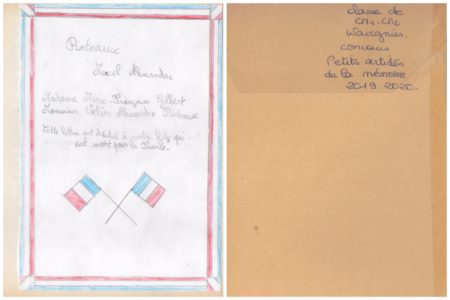 Pinteaux
Marcel Alexandre
Madame Marie-Françoise Gillert
Monsieur Alexandre Pinteaux
Cette lettre est dédié à votre fils qui
est mort pour la France.
classe de
CM1-CM2
Wavignies
concours
Petits artistes
de la mémoire
2019-2020